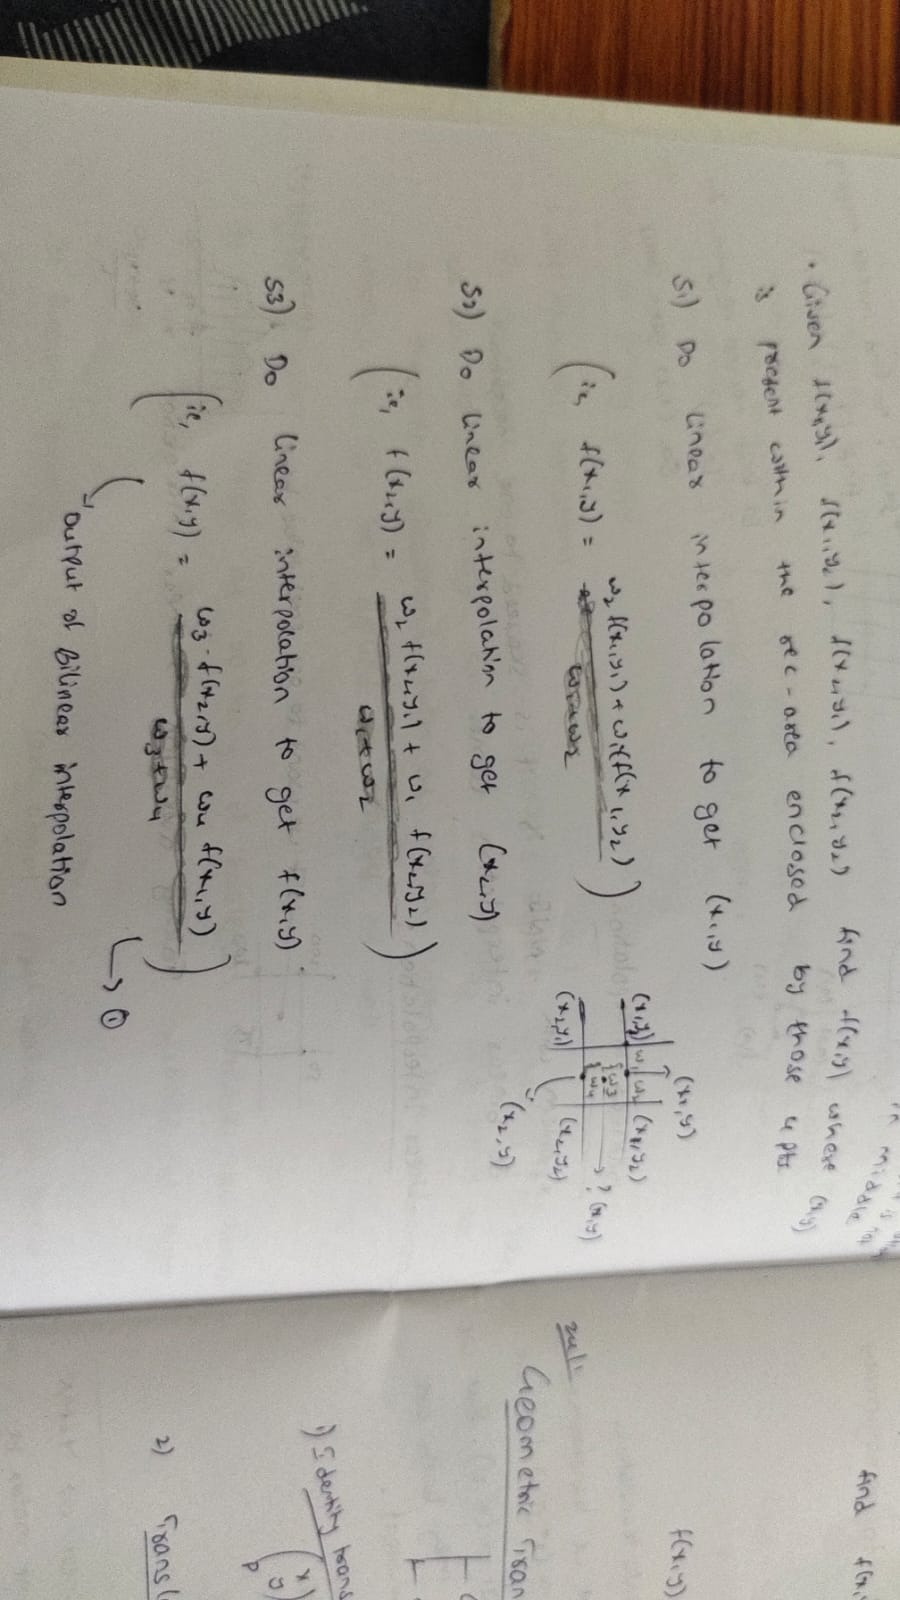 in middle
• Given f(x1,y1), f(x1,y2), f(x2,y1), f(x2,y2) find f(x,y) where (x,y)
is present within the rec-area enclosed by those 4 pts
S1) Do linear interpolation to get (x1,y)
(ie, f(x1,y) = w2 f(x1,y1) + w1(f(x1,y2) / w1+w2)
(x1,y)
(x1,y1) w1 w2 (x1,y2)
w3
w4
? (x,y)
(x2,y1) (x2,y2)
(x2,y)
S2) Do linear interpolation to get (x2,y)
(ie, f(x2,y) = w2 f(x2,y1) + w1 f(x2,y2) / w1+w2)
S3) Do linear interpolation to get f(x,y)
(ie, f(x,y) = w3·f(x2,y) + w4 f(x1,y) / w3+w4)
→ ①
Output of Bilinear interpolation
find
f(x,y)
Geometric Tran
1) Identity trans
x
y
P
2) Transl